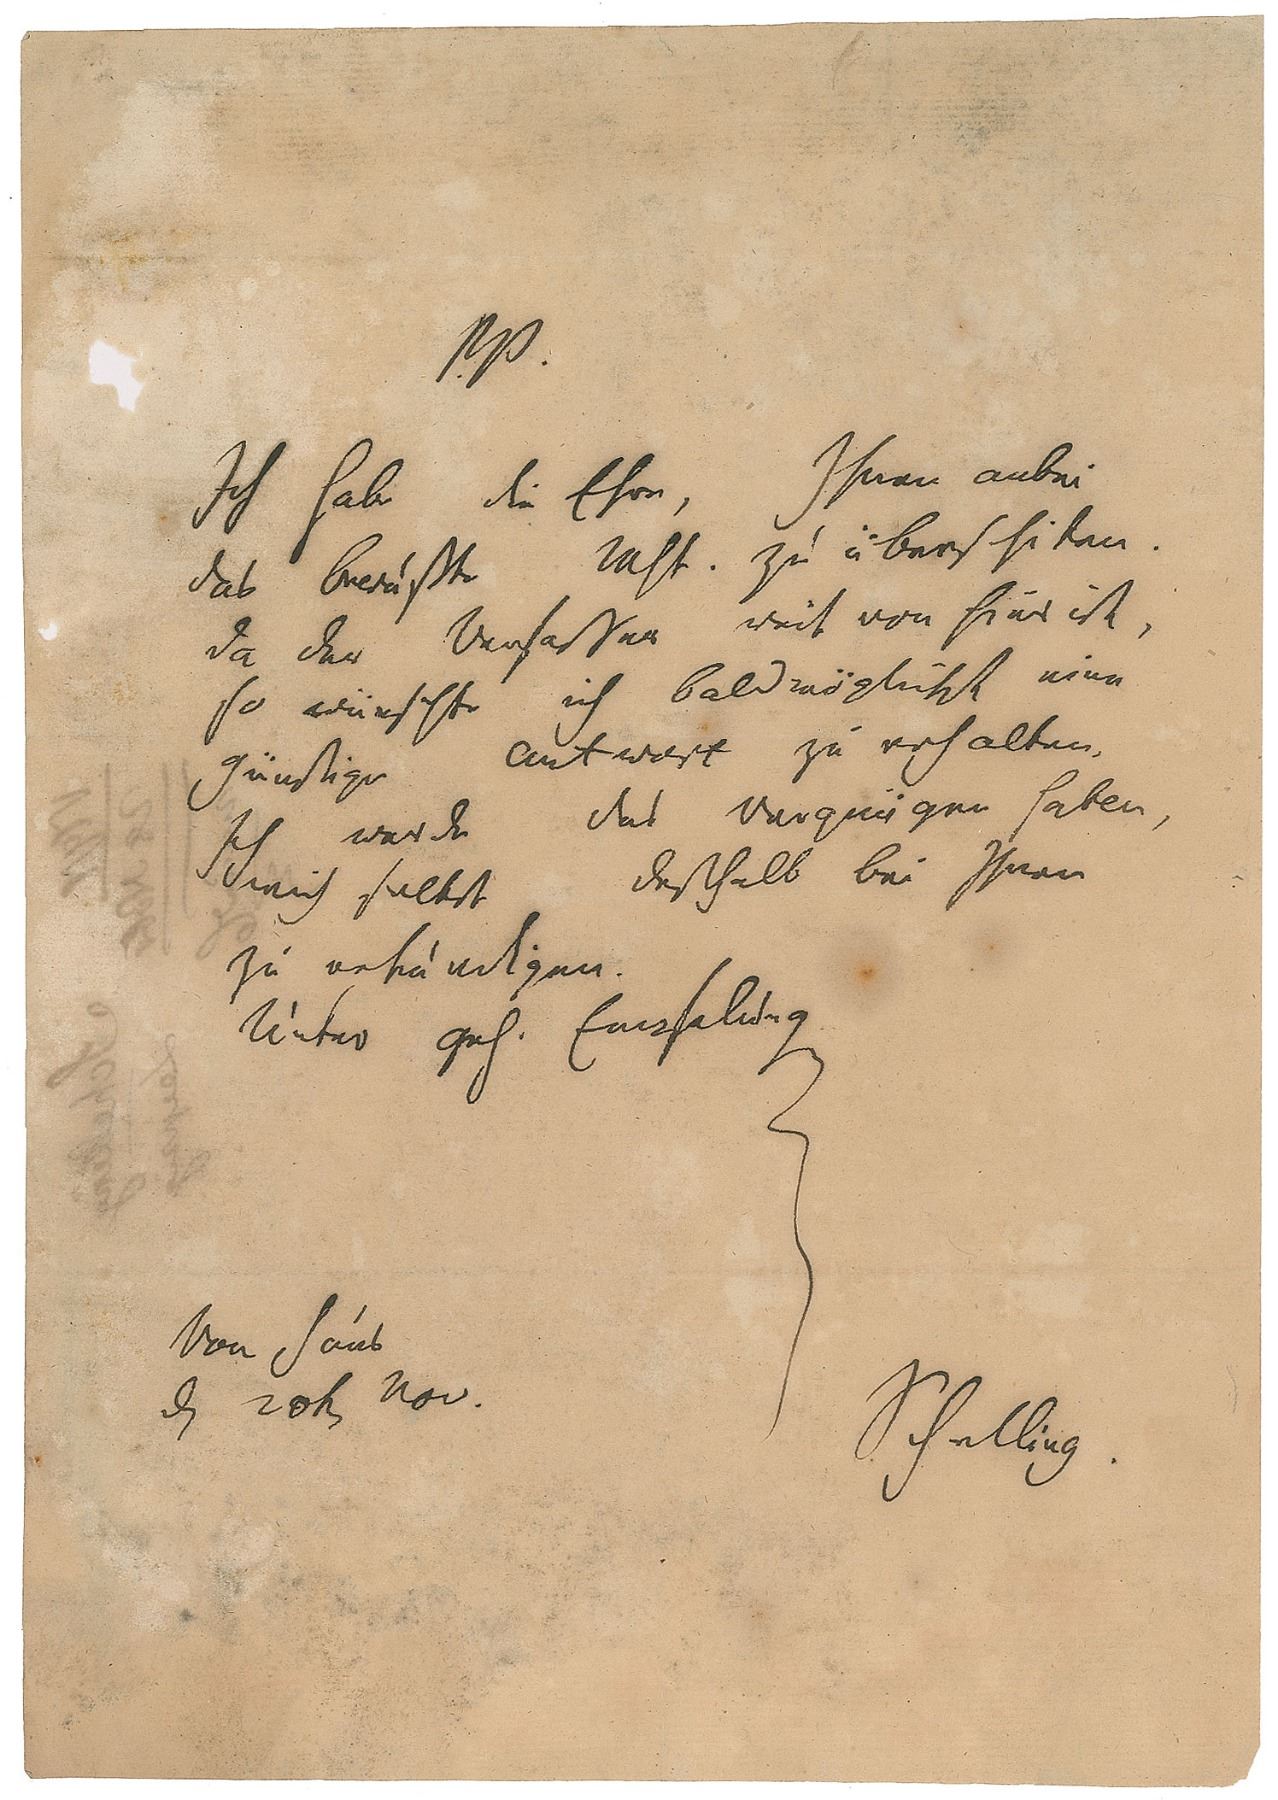 PP.
Ich habe die Ehre, Ihnen anbei
das bewußte Mst. zu überschiken.
da der Verfasser weit von hier ist,
so wünschte ich baldmöglichst eine
günstige Antwort zu erhalten.
Ich werde das Vergnügen haben,
mich selbst deßhalb bei Ihnen
zu erkundigen.
Unter geh. Empfelung
Von Haus
d. 20t. Nov.
Schelling.